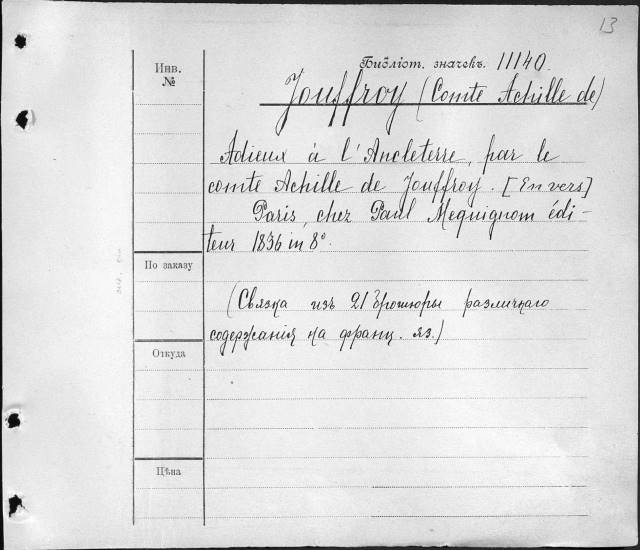 13
Библіот. значекъ. 11140.
Инв.
№
Jouffroy (Comte Achille de)
Adieux à l'Ancleterre, par le
comte Achille de Jouffroy. [En vers]
Paris, chez Paul Mequignom édi-
teur 1836 in 8°.
По заказу
(Связка изъ 21 брошюры различнаго
содержанія на франц. яз.)
Откуда
Цѣна